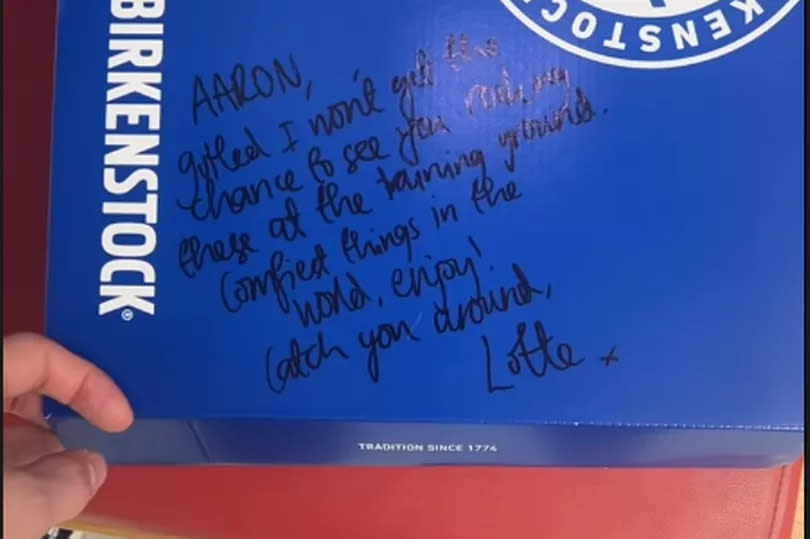 BIRKENSTOCK®
KENSTOC
AARON,
gutted I won't get the
chance to see you rocking
these at the training ground.
Comfiest things in the
world, enjoy!
Catch you around,
Lotte x
TRADITION SINCE 1774